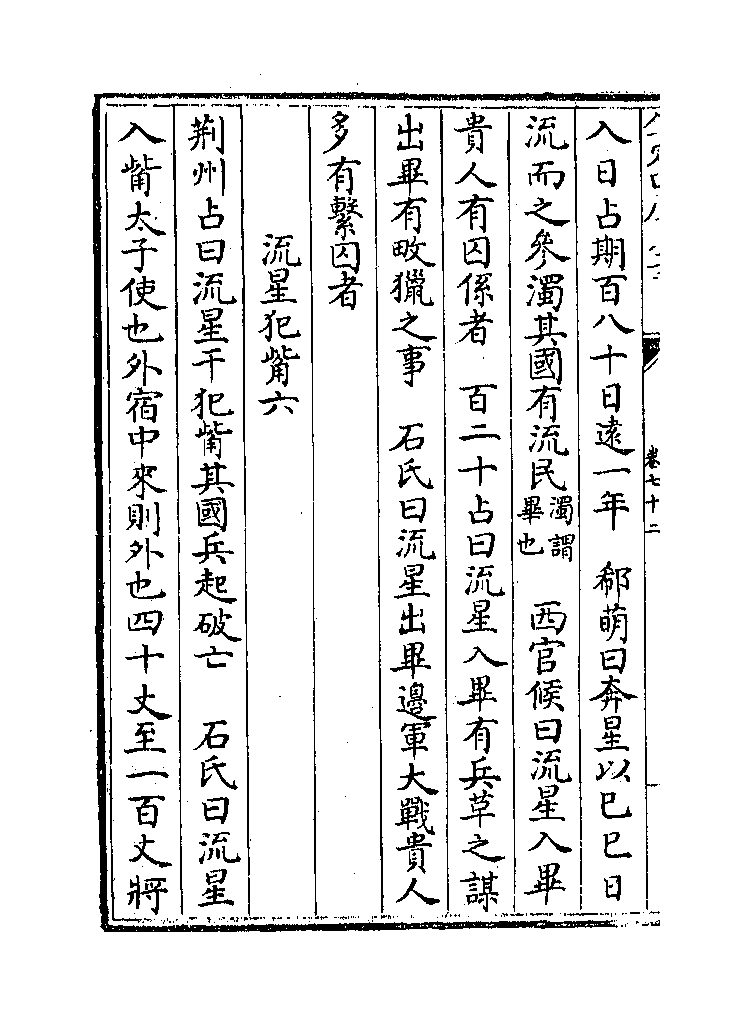 卷七十二
入日占期百八十日遠一年　郗萌曰奔星以巳巳日
流而之參濁其國有流民濁謂畢也　西官候曰流星入畢
貴人有囚係者　百二十占曰流星入畢有兵草之謀
出畢有畋獵之事　石氏曰流星出畢邊軍大戰貴人
多有繫囚者
流星犯觜六
荆州占曰流星干犯觜其國兵起破亡　石氏曰流星
入觜太子使也外宿中來則外也四十丈至一百丈將